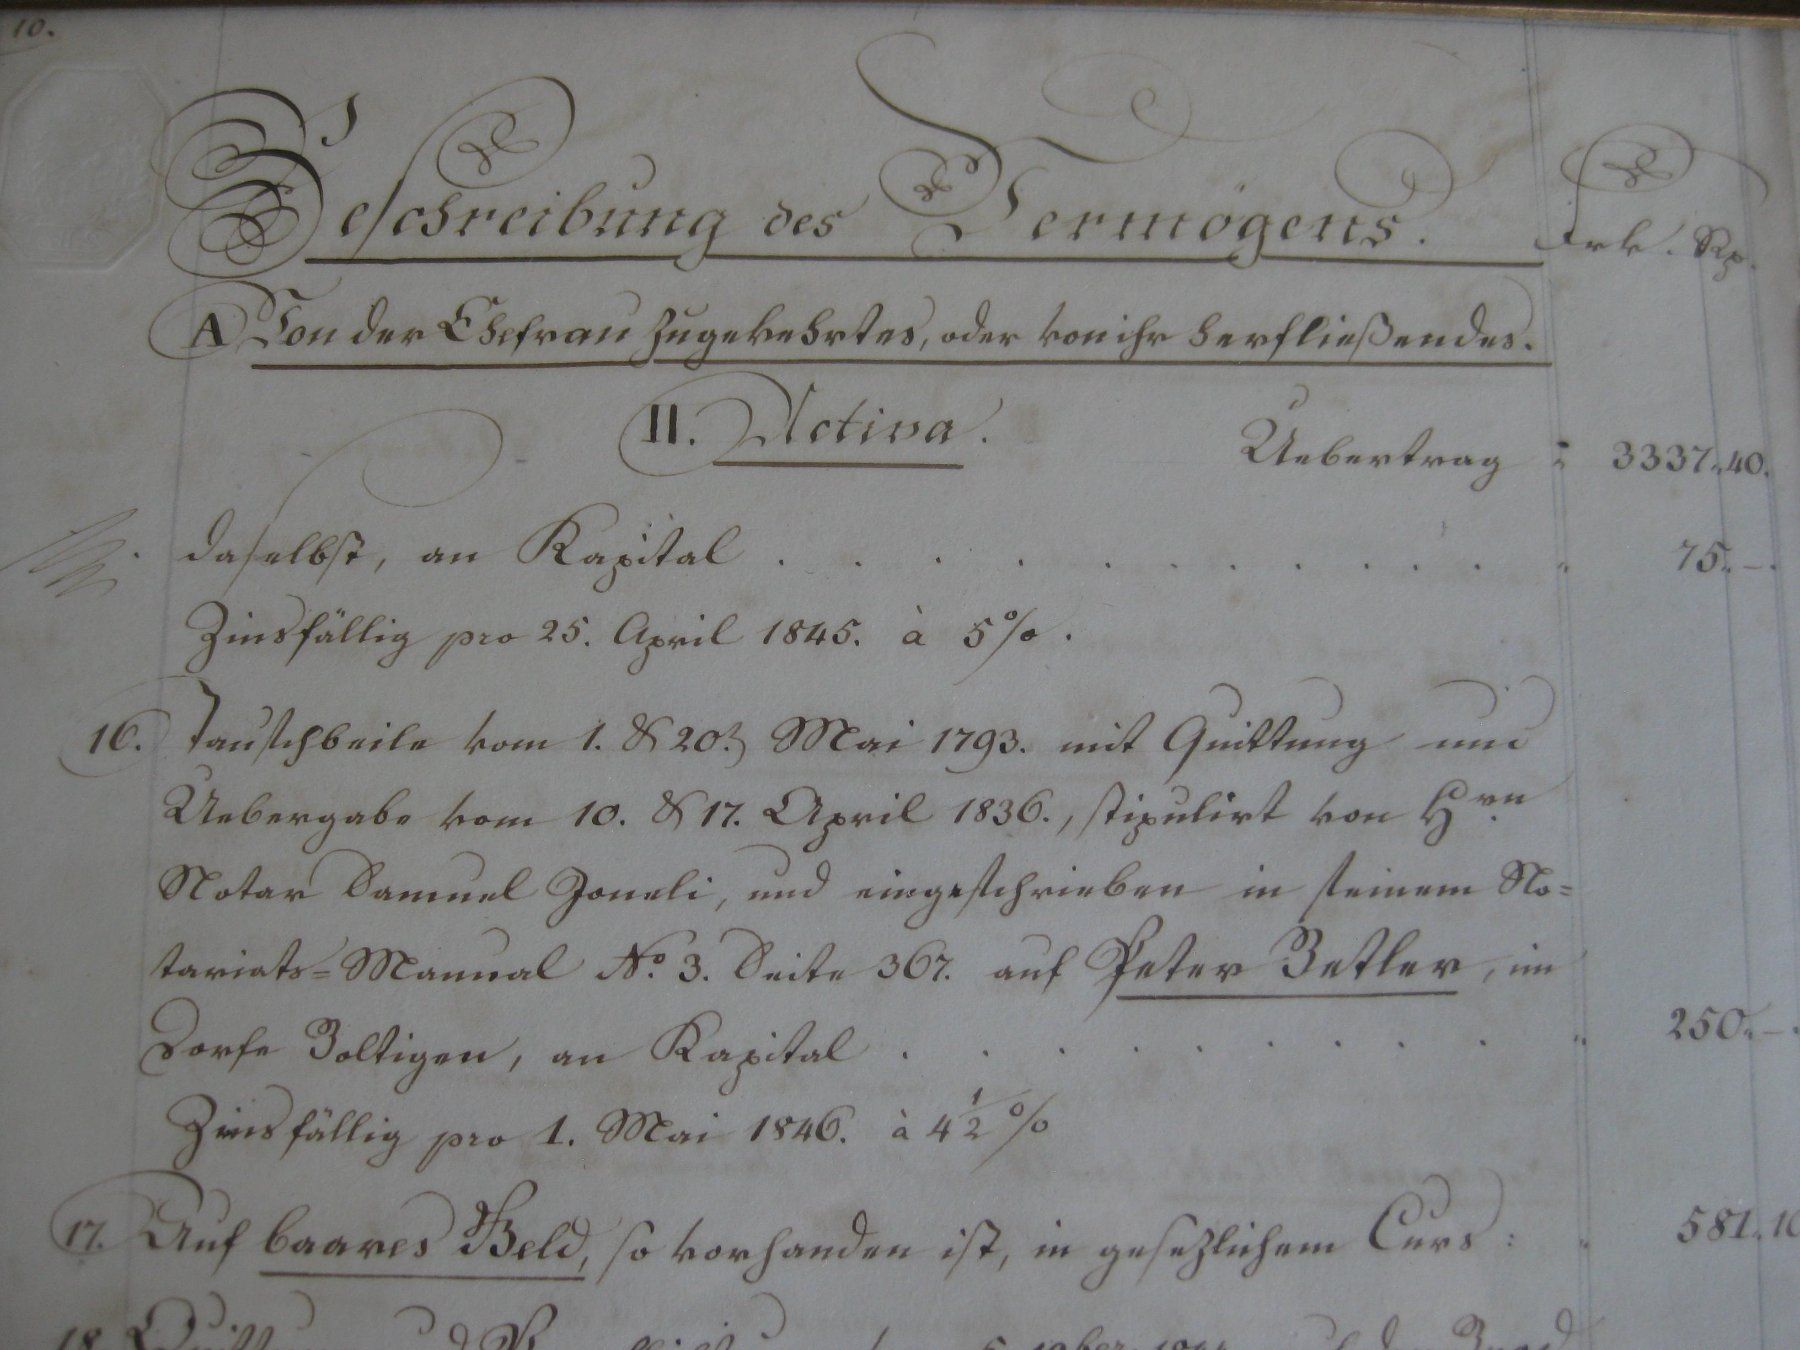 10.
Beschreibung des Vermögens. Frk. Rp.
A Von der Ehefrau zugekehrtes, oder von ihr herfließendes.
II. Activa.
Uebertrag = 3337.,40.
daselbst, an Kapital . . . . . . . . . . " 75.,–.
Zinsfällig pro 25. April 1845. à 5%.
16. Tauschbeile vom 1. & 20. Mai 1793. mit Quittung und
Uebergabe vom 10. & 17. April 1836., stipulirt von Hrn.
Notar Samuel Joneli, und eingeschrieben in seinem No=
tariats=Manual No. 3. Seite 367. auf Peter Betler, im
Dorfe Boltigen, an Kapital . . . . . . . . " 250.,–.
Zinsfällig pro 1. Mai 1846. à 4 1/2 %
17. Auf baares Geld, so vorhanden ist, in gesezlichem Curs : " 581.,10
18.